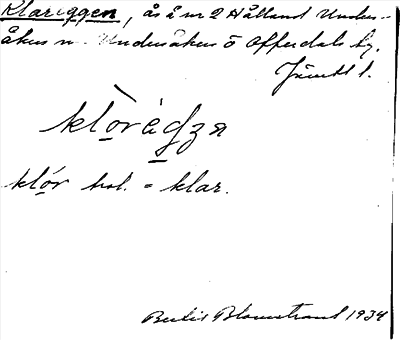 Klareggen, ås å nr 2 Hålland Unders-
åkers sn. Undersåkers o Offerdals tg.
Jämtl l.
klòrégza
klór hol. = klar.
Bertil Blomstrand 1934